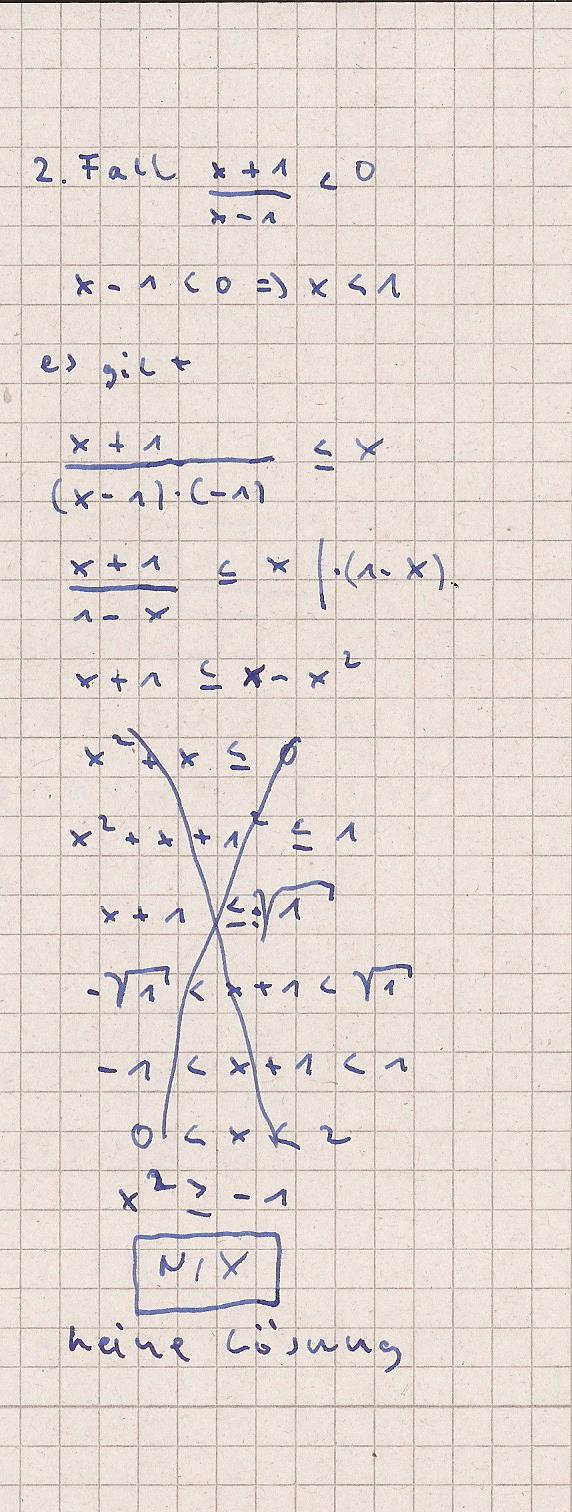 2. Fall (x + 1)/(x - 1) < 0
x - 1 < 0 => x < 1
es gilt
(x + 1)/((x - 1)·(-1)) ≤ x
(x + 1)/(1 - x) ≤ x |·(1 - x)
x + 1 ≤ x - x²
x² + x ≤ 0
x² + x + 1² ≤ 1
x + 1 ≤ ±√1
-√1 < x + 1 < √1
-1 < x + 1 < 1
0 < x < 2
x² ≥ -1
NIX
keine Lösung